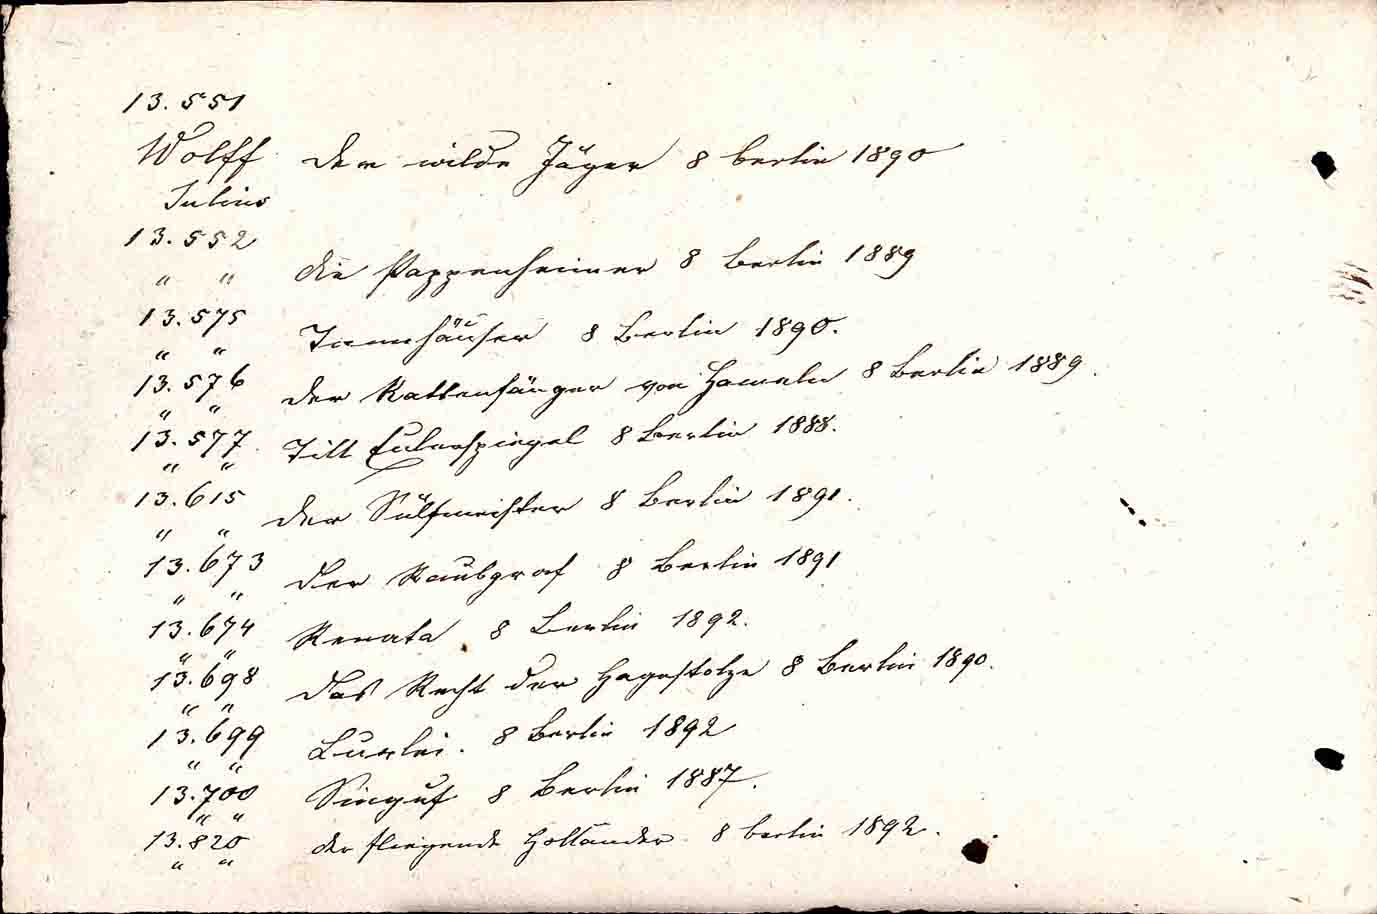 13.551
Wolff der wilde Jäger 8 Berlin 1890
Julius
13.552
" " die Pappenheimer 8 Berlin 1889
13.575
" " Tannhäuser 8 Berlin 1890.
13.576
" " der Rattenfänger von Hameln 8 Berlin 1889.
13.577
" " Till Eulenspiegel 8 Berlin 1888.
13.615
" " der Sülfmeister 8 Berlin 1891.
13.673
" " der Raubgraf 8 Berlin 1891
13.674
" " Renata 8 Berlin 1892.
13.698
" " das Recht der Hagestolze 8 Berlin 1890.
13.699
" " Lurlei. 8 Berlin 1892
13.700
" " Singuf 8 Berlin 1887.
13.820
" " der fliegende Holländer 8 Berlin 1892.